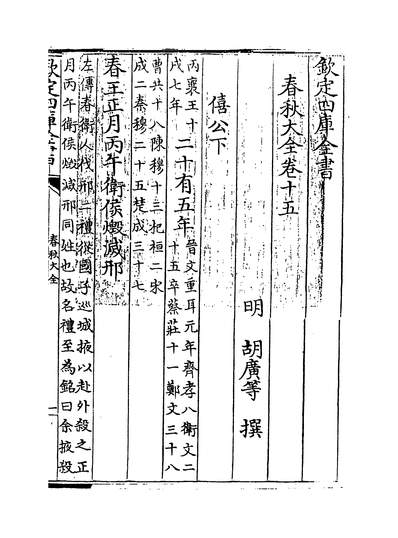 欽定四庫全書
春秋大全卷十五
明 胡廣等 撰
僖公下
丙戌 襄王十七年 二十有五年 晉文重耳元年齊孝八衛文二十五卒蔡莊十一鄭文三十八曹共十八陳穆十三杞桓二宋成二秦穆二十五楚成三十七
春王正月丙午衛侯燬滅邢
左傳春衛人伐邢二禮從國子巡城掖以赴外殺之正
月丙午衛侯燬滅邢同姓也故名禮至為銘曰余掖殺
欽定四庫全書
春秋大全
一